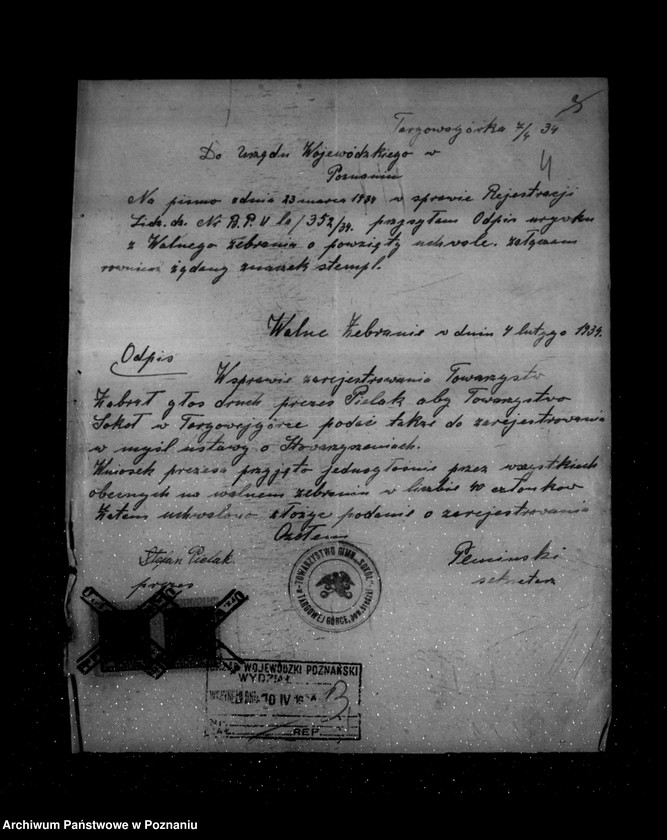 Targowagórka 7/4 34
4
Do Urzędu Wojewódzkiego w
Poznaniu
Na pismo zdnia 23 marca 1934 w sprawie Rejestracji
Licz. dz. Nr B.P.V la/352/34. przysyłam Odpis urywku
z Walnego zebrania o powzięty uchwole. załączam
rownież żądany znaczek stempl.
Walne Zebranie w dniu 4 lutygo 1934.
Odpis
Wsprawie zarejestrowania Towarzystw
Zabrał głos druch prezes Pielak aby Towarzystwo
Sokoł w Targowejgórce podać także do zarejestrowania
w myśl ustawy o Stowarzyszeniach.
Wniosek prezesa przyjęto jednogłośnie przez wszystkich
obecnych na walnem zebraniu w liczbie 40 członków
Zatem uchwalono złożyć podanie o zarejestrowanie
Czołem
Stefan Pielak
prezes
Peminski
sekretarz
TOWARZYSTWO GIMN. "SOKÓŁ"
W TARGOWEJ GÓRCE, POW. ŚRODA
URZĄD WOJEWÓDZKI POZNAŃSKI
WYDZIAŁ
WPŁYNĘŁO DNIA 10 IV 1934
Nr.
ZAŁ. REF.
Archiwum Państwowe w Poznaniu